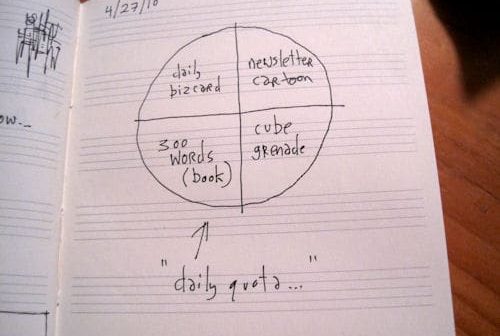 4/27/10
ow...
daily
bizcard
newsletter
cartoon
300
words
(book)
cube
grenade
"daily quota..."